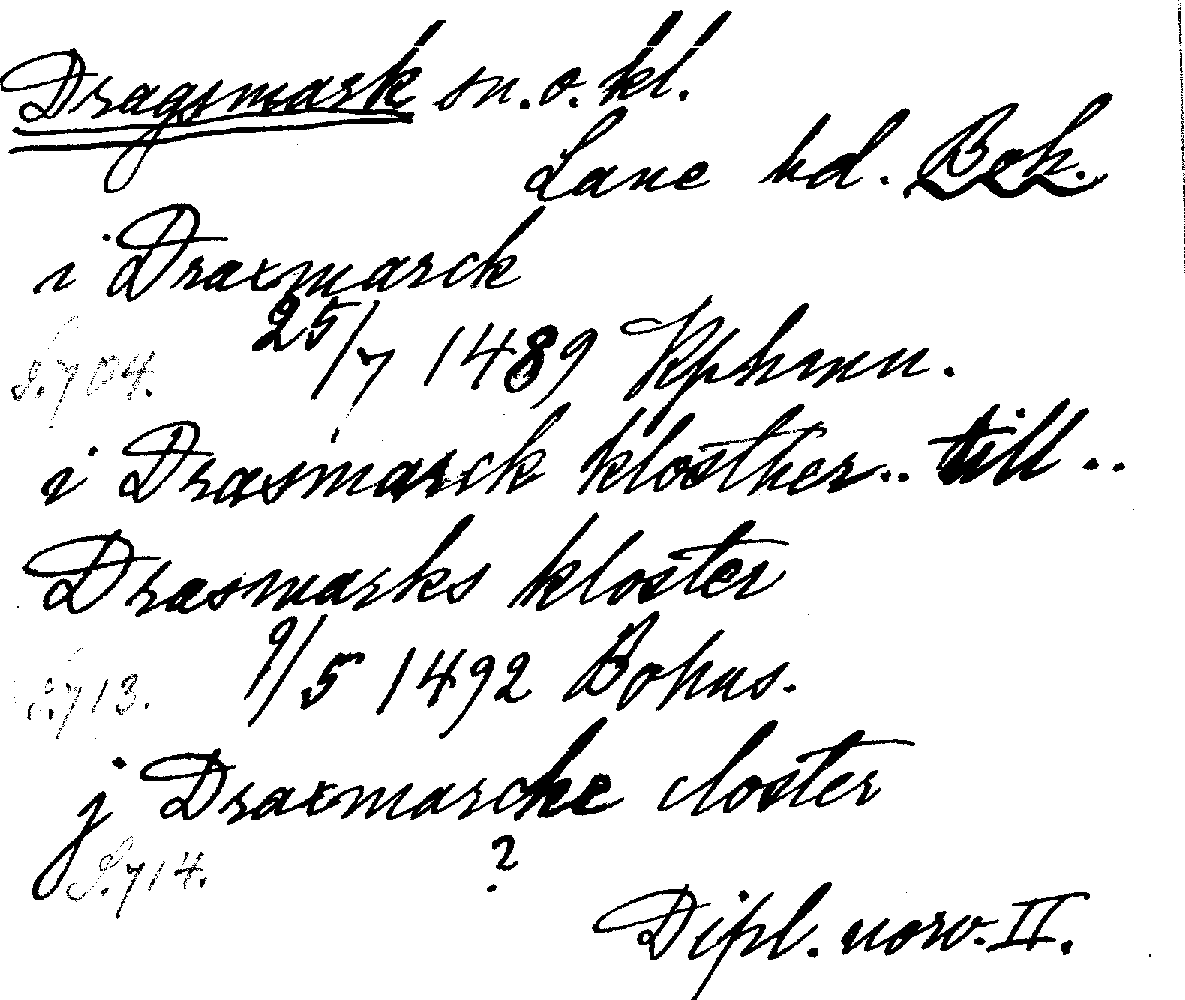 Dragsmark sn. o. kl.
Lane hd. Boh.
i Draxmarck
S. 704. 25/7 1489 Kphmn.
i Drasmarck klosther .. till ..
Drasmarks kloster
S. 713. 9/5 1492 Bohus.
j Draxmarcke closter
S. 714. ?
Dipl. norv. II.